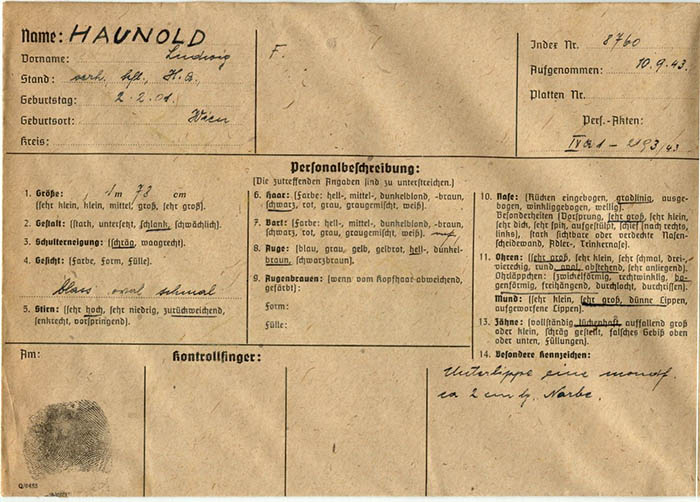 Name: HAUNOLD
Vorname: Ludwig
Stand: verh. kfl. H. A.
Geburtstag: 2. 2. 01.
Geburtsort: Wien
Kreis:
F.
Index Nr. 8760
Aufgenommen: 10.9.43.
Platten Nr.
Pers.-Akten:
2193/43
Personalbeschreibung:
(Die zutreffenden Angaben sind zu unterstreichen.)
1. Größe: 1m 78 cm
(sehr klein, klein, mittel, groß, sehr groß).
2. Gestalt: (stark, untersetzt, schlank, schwächlich).
3. Schulterneigung: (schräg, waagrecht).
4. Gesicht: (Farbe, Form, Fülle).
blass oval schmal
5. Stirn: (sehr hoch, sehr niedrig, zurückweichend,
senkrecht, vorspringend).
6. Haar: (Farbe: hell-, mittel-, dunkelblond, -braun,
schwarz, rot, grau, graugemischt, weiß).
7. Bart: (Farbe: hell-, mittel-, dunkelblond, -braun,
schwarz, rot, grau, graugemischt, weiß).
8. Auge: (blau, grau, gelb, gelbrot, hell-, dunkel-
braun, schwarzbraun).
9. Augenbrauen: (wenn vom Kopfhaar abweichend,
gefärbt):
Form:
Fülle:
10. Nase: (Rücken eingebogen, gradlinig, ausge-
bogen, winkliggebogen, wellig).
Besonderheiten (Vorsprung, sehr groß, sehr klein,
sehr dick, sehr spitz, aufgestülpt, schief (nach rechts,
links), stark sichtbare oder verdeckte Nasen-
scheidewand, Adler-,
11. Ohren: (sehr groß, sehr klein, sehr schmal, drei-,
viereckig, rund, oval, abstehend, sehr anliegend).
Ohrläppchen: (zwickelförmig, rechtwinklig, bo-
genförmig, freihängend, durchlocht, durchrissen).
Mund: (sehr klein, sehr groß, dünne Lippen,
aufgeworfene Lippen).
13. Zähne: (vollständig lückenhaft, auffallend groß
oder klein, schräg gestellt, falsches Gebiß oben
oder unten, Füllungen).
14. Besondere Kennzeichen:
Unterlippe eine
ca 2 cm lg. Narbe.
Am:
Kontrollfinger: